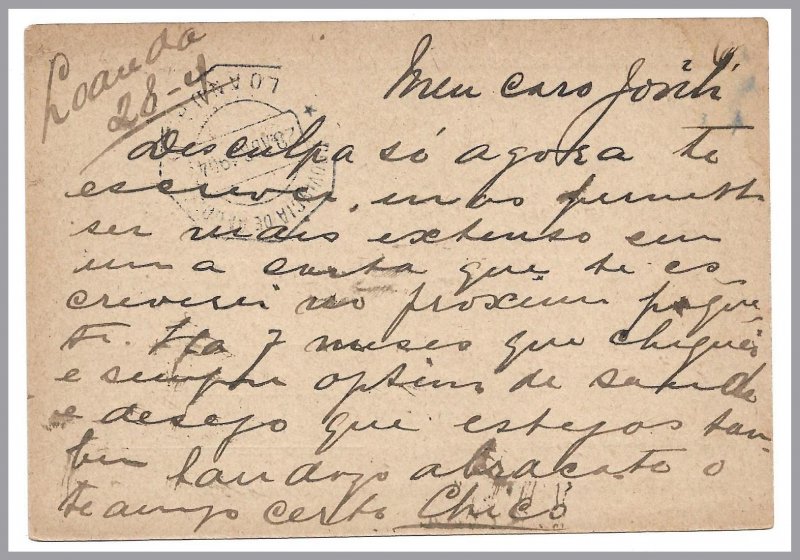 Loanda
28-4
Meu caro José
Desculpa só agora te
escrever, mas prometto
ser mais extenso em
uma carta que te es
creverei no proximo paque
te. Ha 7 meses que cheguei
e sempre optimo de saude
e desejo que estejas tam-
bem
abraça-te o
teu amigo certo Chico
LOANDA